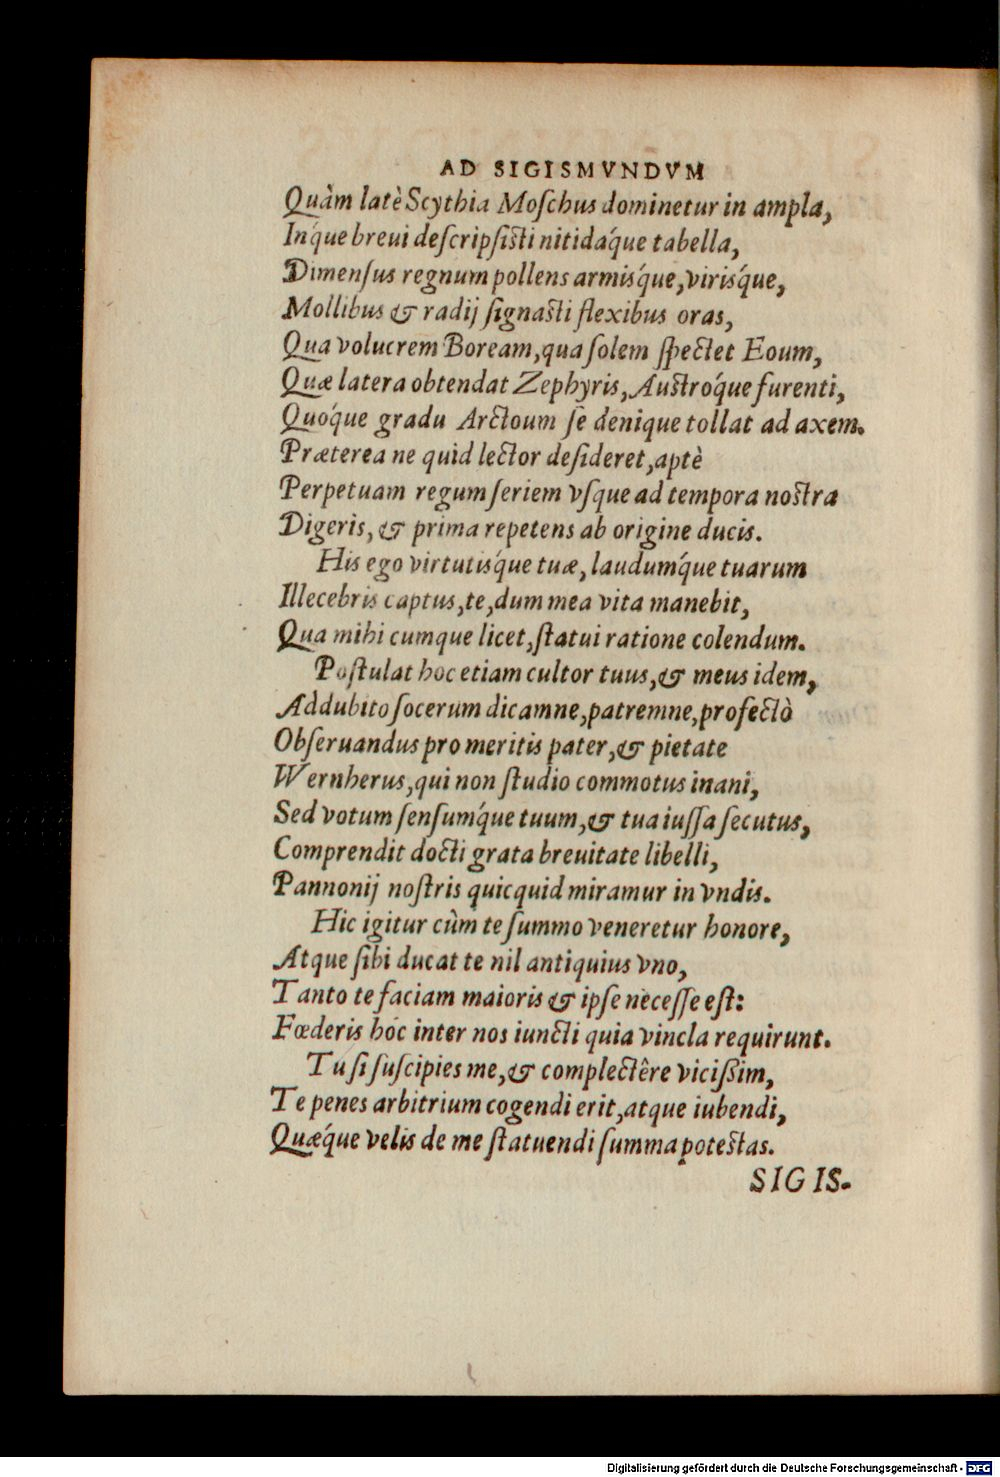 AD SIGISMVNDVM
Quàm latè Scythia Moſchus dominetur in ampla,
Inq́ue breui deſcripſisti nitidaq́ue tabella,
Dimenſus regnum pollens armisq́ue, virisq́ue,
Mollibus & radij ſignasti flexibus oras,
Qua volucrem Boream, qua ſolem ſpectet Eoum,
Quæ latera obtendat Zephyris, Austroq́ue furenti,
Quoq́ue gradu Arctoum ſe denique tollat ad axem.
Præterea ne quid lector deſideret, aptè
Perpetuam regum ſeriem vſque ad tempora nostra
Digeris, & prima repetens ab origine ducis.
His ego virtutisq́ue tuæ, laudumq́ue tuarum
Illecebris captus, te, dum mea vita manebit,
Qua mihi cumque licet, ſtatui ratione colendum.
Poſtulat hoc etiam cultor tuus, & meus idem,
Addubito ſocerum dicamne, patremne, profectò
Obſeruandus pro meritis pater, & pietate
Wernherus, qui non ſtudio commotus inani,
Sed votum ſenſumq́ue tuum, & tua iuſſa ſecutus,
Comprendit docti grata breuitate libelli,
Pannonij noſtris quicquid miramur in vndis.
Hic igitur cùm te ſummo veneretur honore,
Atque ſibi ducat te nil antiquius vno,
Tanto te faciam maioris & ipſe neceſſe eſt:
Fœderis hoc inter nos iuncti quia vincla requirunt.
Tu ſi ſuſcipies me, & complectêre viciſsim,
Te penes arbitrium cogendi erit, atque iubendi,
Quæq́ue velis de me ſtatuendi ſumma potestas.
SIGIS-
Digitalisierung gefördert durch die Deutsche Forschungsgemeinschaft - DFG